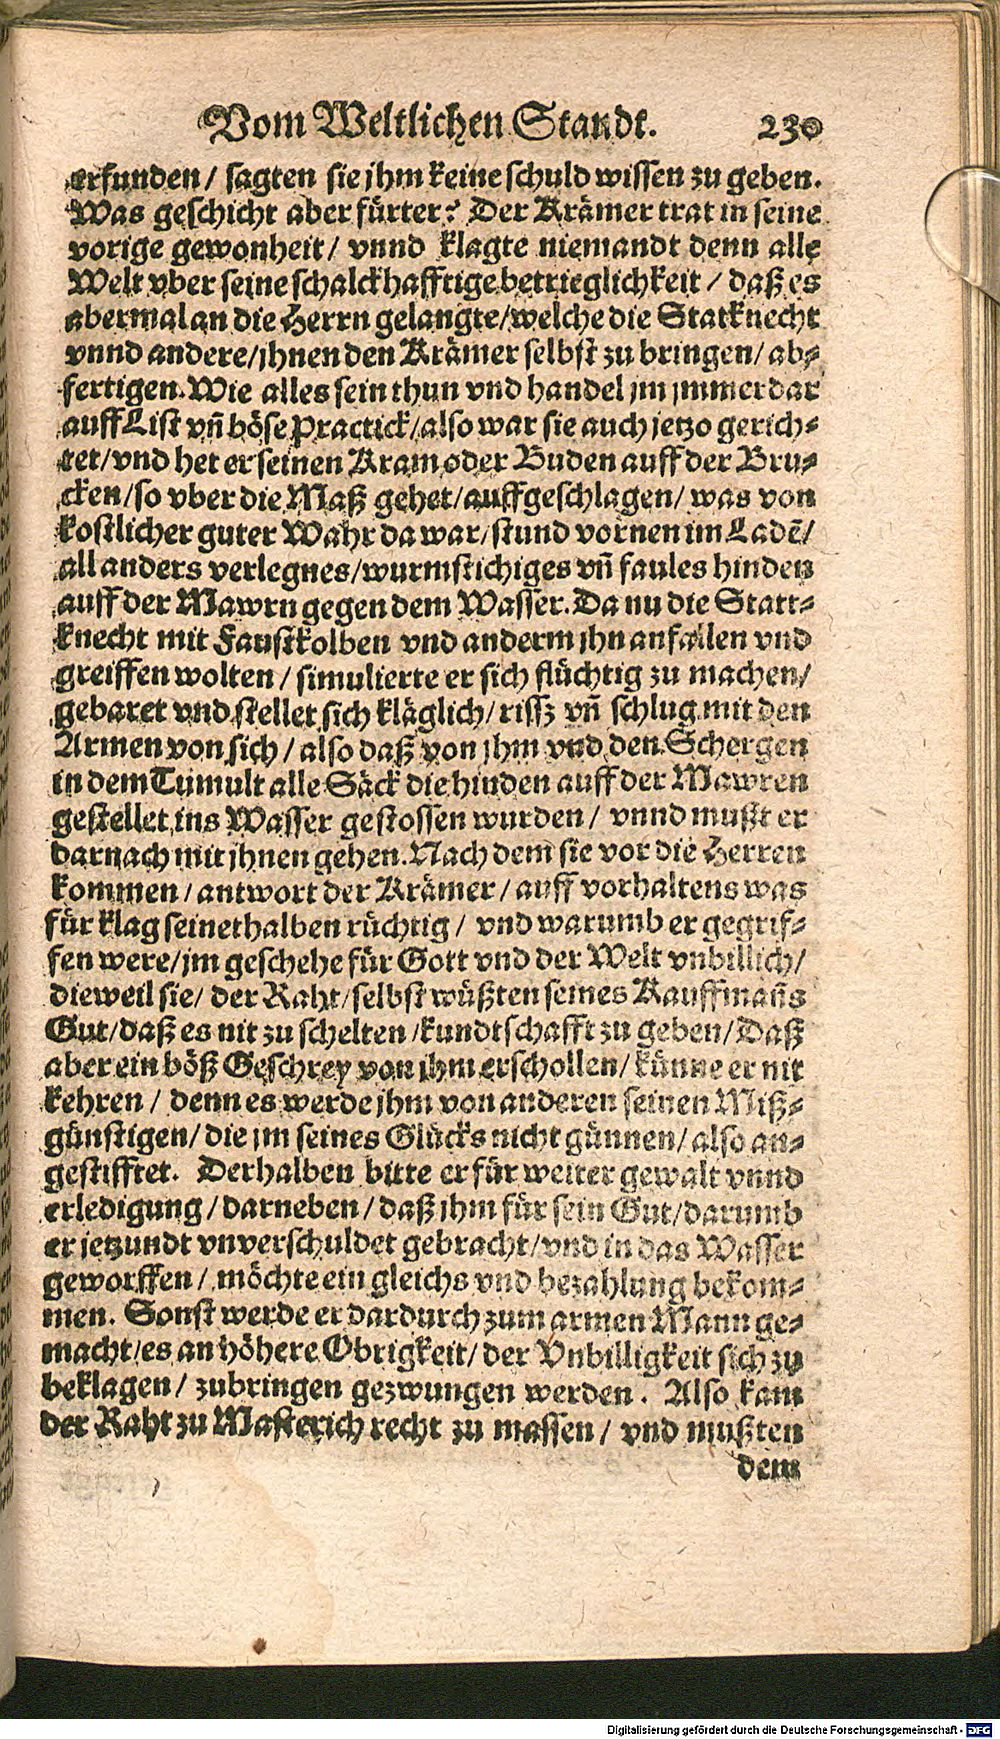 Vom Weltlichen Standt. 230
erfunden / sagten sie jhm keine schuld wissen zu geben.
Was geschicht aber fürter? Der Krämer trat in seine
vorige gewonheit / vnnd klagte niemandt denn alle
Welt vber seine schalckhafftige betrieglichkeit / daß es
abermal an die Herrn gelangte / welche die Statknecht
vnnd andere / jhnen den Krämer selbst zu bringen / ab-
fertigen. Wie alles sein thun vnd handel jm jmmerdar
auff List vñ böse Practick / also war sie auch jetzo gerich-
tet / vnd het er seinen Kram oder Buden auff der Bru-
cken / so vber die Maß gehet / auffgeschlagen / was von
kostlicher guter Wahr da war / stund vornen im Ladē /
all anders verlegnes / wurmstichiges vñ faules hinden
auff der Mawrn gegen dem Wasser. Da nu die Statt-
knecht mit Faustkolben vnd anderm jhn anfallen vnd
greiffen wolten / simulierte er sich flüchtig zu machen /
gebaret vnd stellet sich kläglich / rissz vñ schlug mit den
Armen von sich / also daß von jhm vnd den Schergen
in dem Tumult alle Säck die hinden auff der Mawren
gestellet ins Wasser gestossen wurden / vnnd mußt er
darnach mit jhnen gehen. Nach dem sie vor die Herren
kommen / antwort der Krämer / auff vorhaltens was
für klag seinethalben rüchtig / vnd warumb er gegrif-
fen were / jm geschehe für Gott vnd der Welt vnbillich /
dieweil sie / der Raht / selbst wüßten seines Kauffmañs
Gut / daß es nit zu schelten / kundtschafft zu geben / Daß
aber ein böß Geschrey von jhm erschollen / künne er nit
kehren / denn es werde jhm von anderen seinen Miß-
günstigen / die jm seines Glücks nicht günnen / also an-
gestifftet. Derhalben bitte er für weiter gewalt vnnd
erledigung / darneben / daß jhm für sein Gut / darumb
er jetzundt vnverschuldet gebracht / vnd in das Wasser
geworffen / möchte ein gleichs vnd bezahlung bekom-
men. Sonst werde er dardurch zum armen Mann ge-
macht / es an höhere Obrigkeit / der Vnbilligkeit sich zu
beklagen / zubringen gezwungen werden. Also kam
der Raht zu Mastrich recht zu massen / vnd mußten
dem
Digitalisierung gefördert durch die Deutsche Forschungsgemeinschaft - DFG